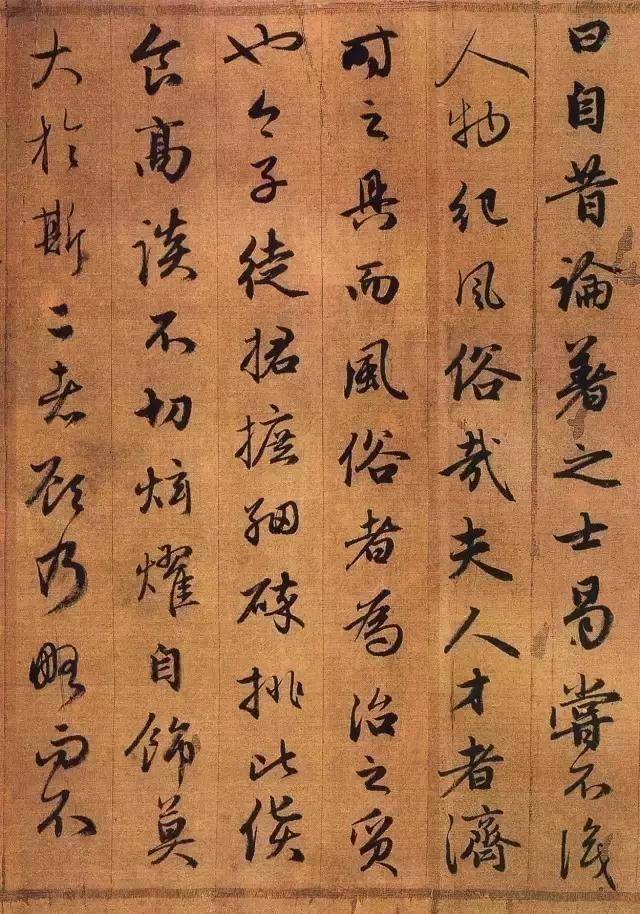 曰自昔論著之士曷嘗不
人物紀風俗哉夫人才者濟
時之具而風俗者為治之質
也今子徒捃摭細碎排比貨
食高談不切炫耀自飾莫
大於斯二者顧乃略而不